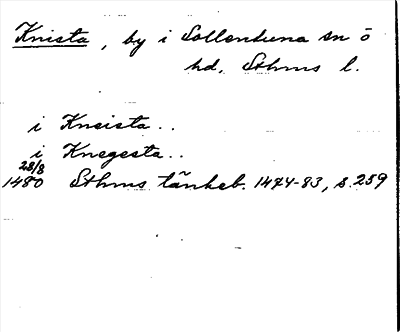 Knista, by i Sollentuna sn o
hd, Sthms l.
i Kneista..
i Knegesta..
28/8
1480 Sthms tänkeb. 1474-83, s. 259